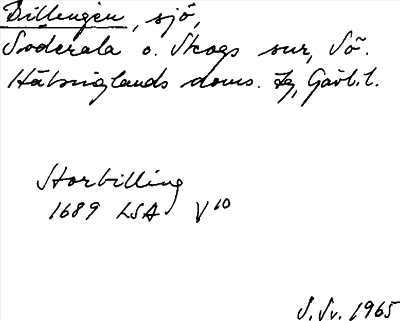 Billengen, sjö,
Söderala o. Skogs snr, Sö.
Hälsinglands doms. hg, Gävl. l.
Storbilling
1689 LSA V 10
S. Sv. 1965